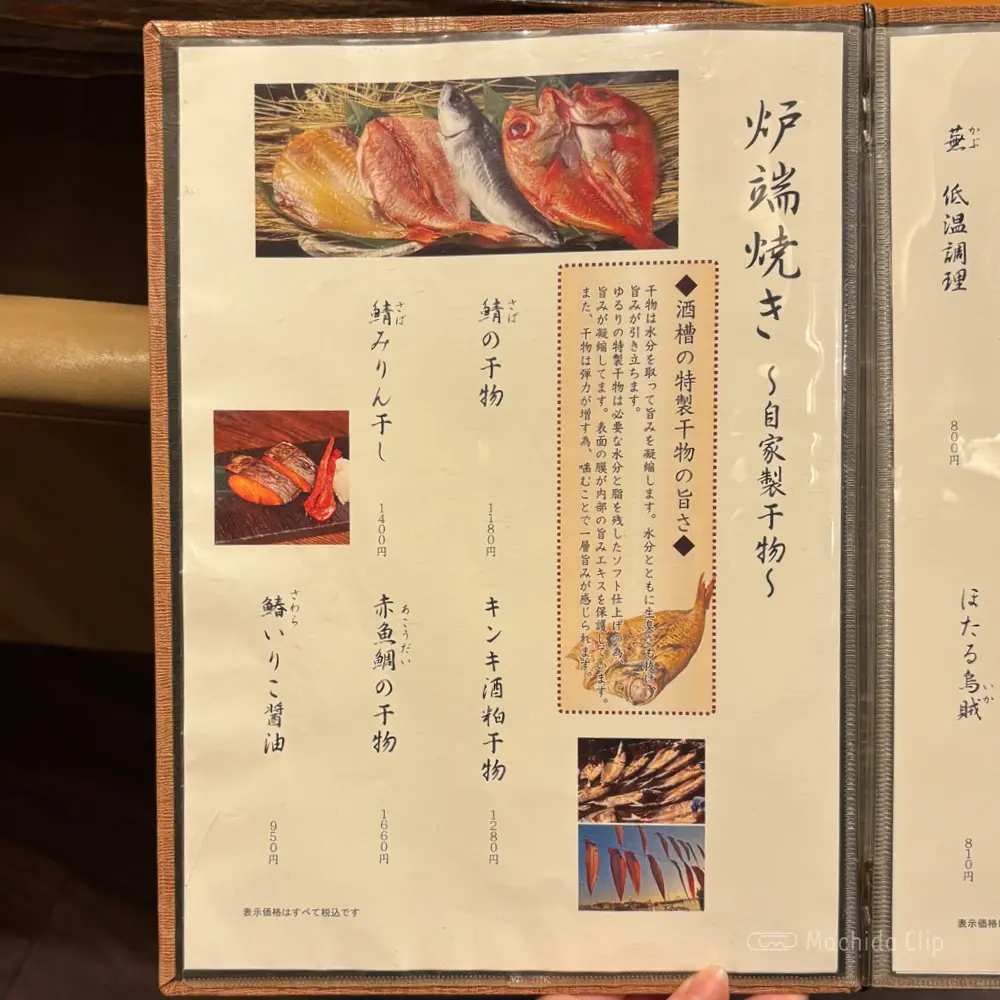 炉端焼き 〜自家製干物〜
◆酒槽の特製干物の旨さ◆
干物は水分を取って旨みを凝縮します。水分とともに生臭さも抜け、
旨みが引き立ちます。
ゆるりの特製干物は必要な水分と脂を残したソフト仕上げの為、
旨みが凝縮してます。表面の膜が内部の旨みエキスを保護しています。
また、干物は弾力が増す為、噛むことで一層旨みが感じられます。
鯖の干物
さば
1180円
キンキ酒粕干物
1280円
鯖みりん干し
さば
1400円
赤魚鯛の干物
あこうだい
1660円
鰆いりこ醤油
さわら
950円
表示価格はすべて税込です
蕪 低温調理
かぶ
800円
ほたる烏賊
いか
810円
表示価格は
Machida Clip